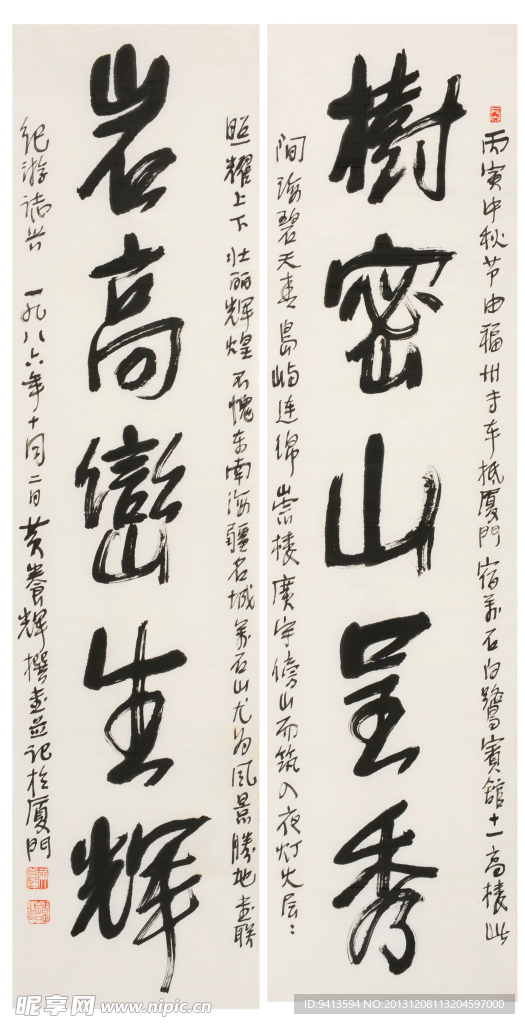 樹密山呈秀
丙寅中秋节由福州专车抵厦門宿万石白鹭賓舘十一高楼此
间海碧天青島屿连绵崇楼廣宇傍山而筑入夜灯火层:
岩高巒生輝
照耀上下壮丽辉煌不愧东南海疆名城万石山尤为风景勝地書联
紀游誌兴 一九八六年十月二日黄養輝撰書並记於厦門
昵享网 www.nipic.cn
ID:9413594 NO:20131208113204597000